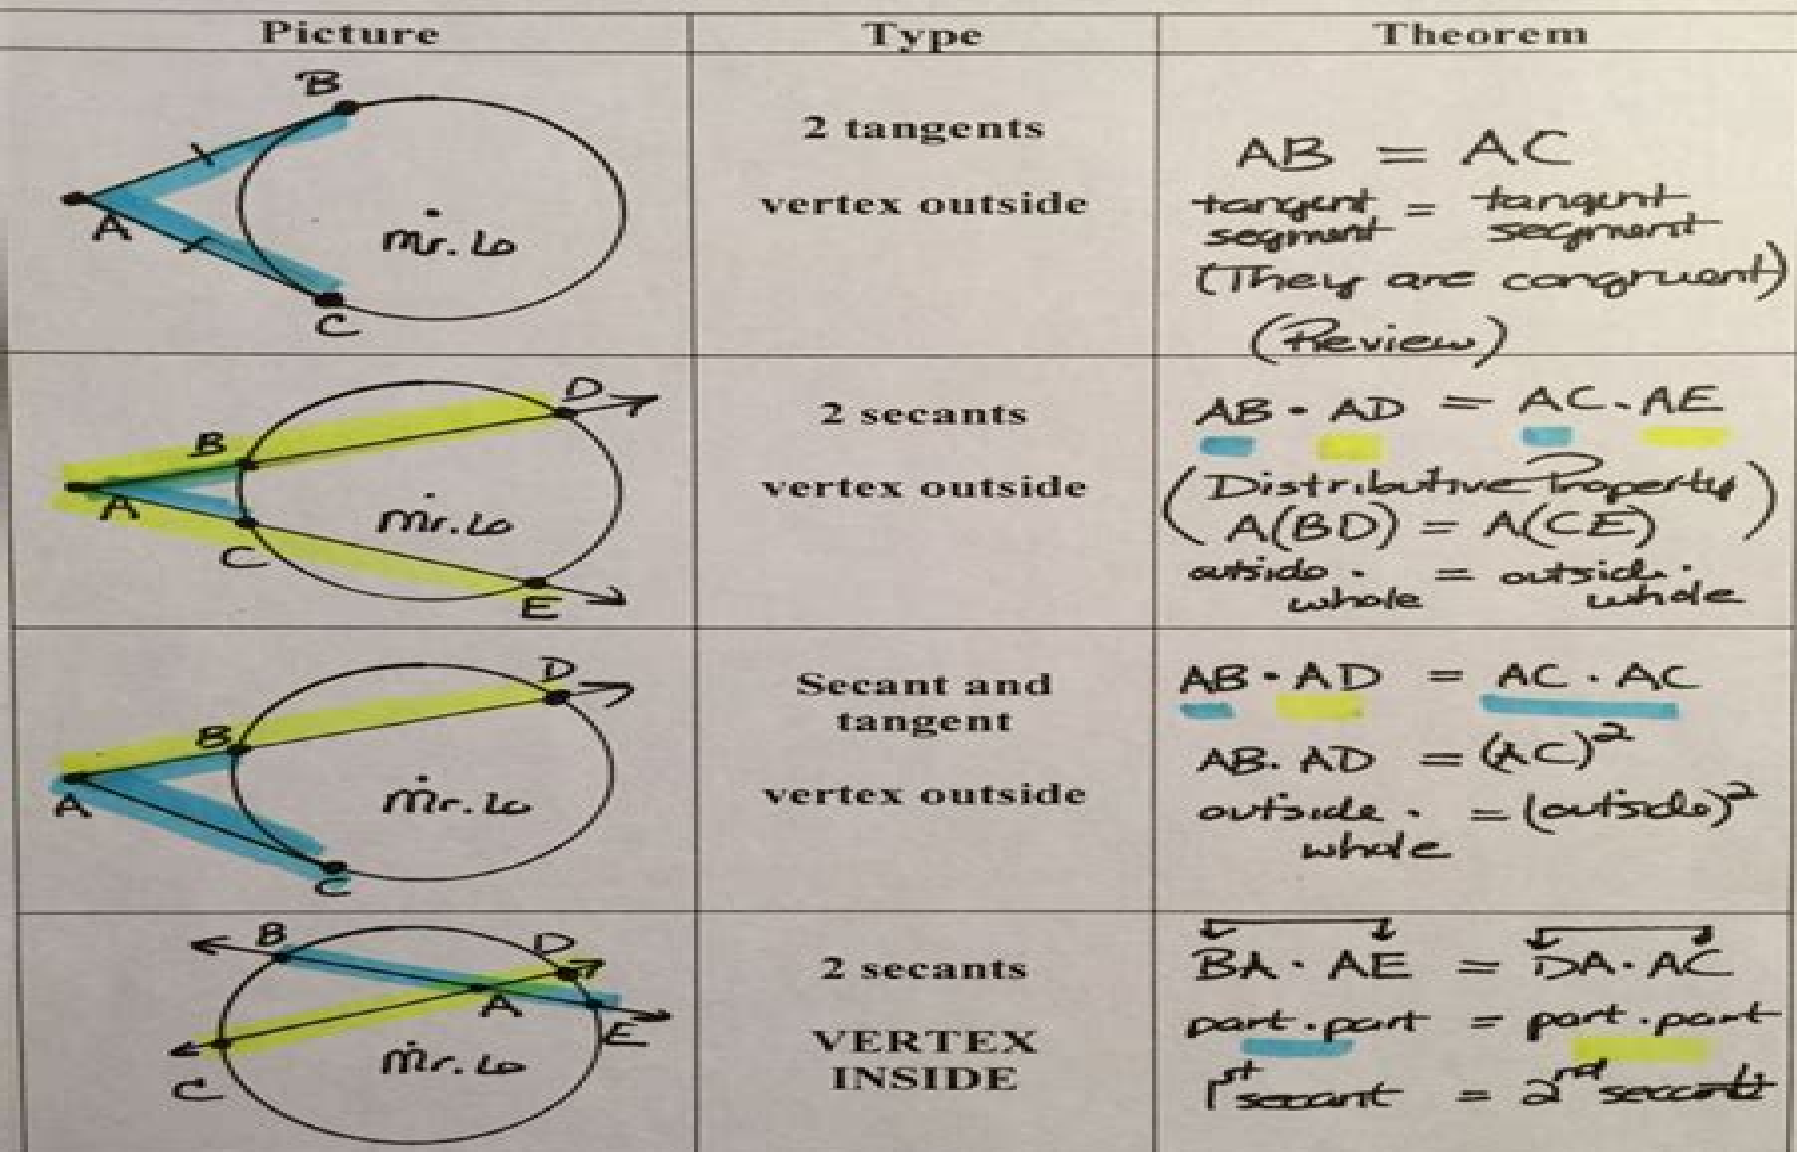 Picture Type Theorem
B
A
C
mr. Lo
2 tangents
vertex outside
AB = AC
tangent = tangent
segment segment
(They are congruent)
(Review)
D
B
A
C
E
mr. Lo
2 secants
vertex outside
AB · AD = AC · AE
(Distributive Property)
A(BD) = A(CE)
outside · = outside ·
whole whole
D
B
A
C
mr. Lo
Secant and
tangent
vertex outside
AB · AD = AC · AC
AB · AD = (AC)²
outside · = (outside)²
whole
B
D
A
E
C
mr. Lo
2 secants
VERTEX
INSIDE
BA · AE = DA · AC
part · part = part · part
1st secant = 2nd secant